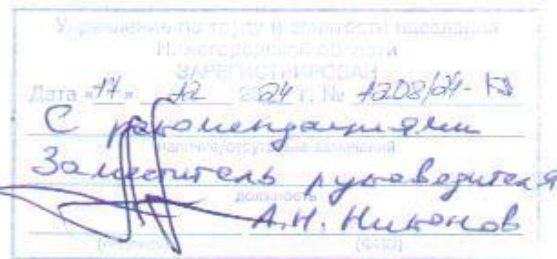 Управление по труду и занятости населения
Нижегородской области
ЗАРЕГИСТРИРОВАН
Дата «17» 12 2024 г. № 1208/24-КД
С рекомендациями
наличие/отсутствие замечаний
Заместитель руководителя
должность
А.Н. Никонов
(подпись) (ФИО)